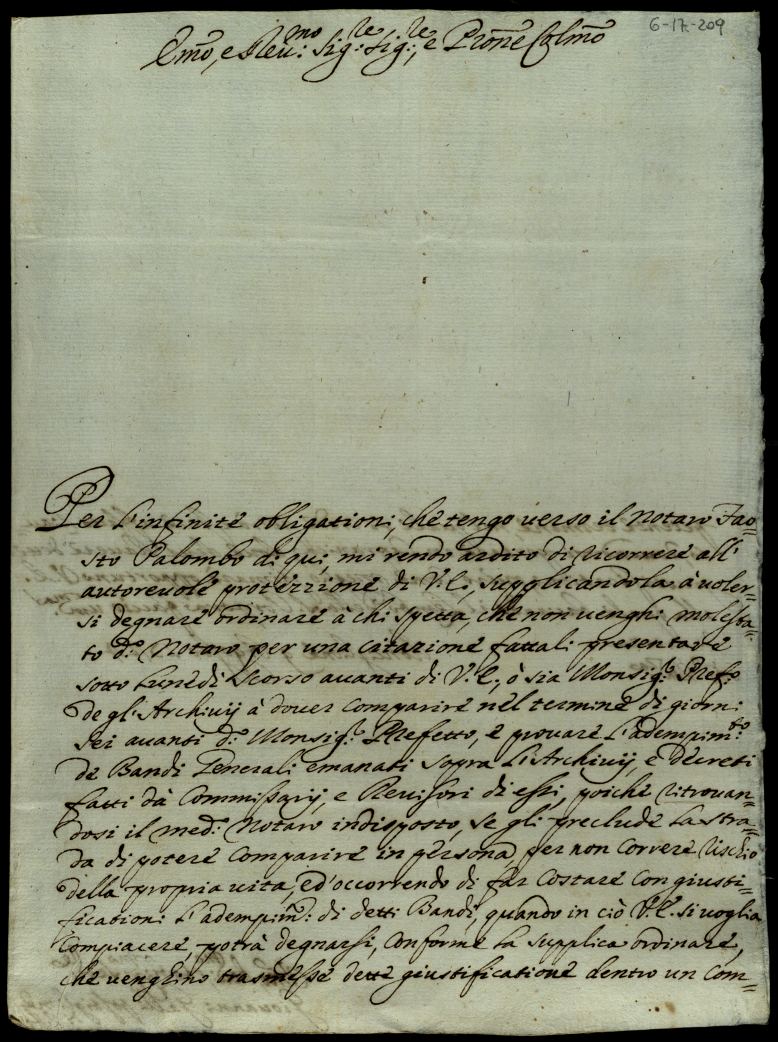 6-17-209
Emo, e Reu:mo Sig:re Sig:re, e Prone Colmo
Per l'infinite obligationi, che tengo uerso il Notaro Fao=
sto Palombo di qui, mi rendo ardito di ricorrere all'
autoreuole protezzione di V.E., supplicandola à uoler=
si degnare ordinare à chi spetta, che non uenghi molesta=
to d.º Notaro per una citazione fattali presentare
sotto Lunedi scorso auanti di V.E., ò sia Monsig.r Pref.º
degl'Archiuij à douer comparire nel termine di giorni
sei auanti d.º Monsig.r Prefetto, e prouare l'adempim.to
de Bandi Generali emanati sopra l'Archiuij, e decreti
fatti dà Commissarij, e Reuisori di essi, poiche ritrouan=
dosi il med.º Notaro indisposto, se gli preclude la stra=
da di potere comparire in persona, per non correre rischio
della propria uita, ed'occorrendo di far costare con giusti=
ficationi l'adempim.º di detti Bandi, quando in ciò V.E. si uoglia
compiacere, potrà degnarsi, conforme la supplica ordinare,
che uenghino trasmesse dette giustificatione dentro un Com=